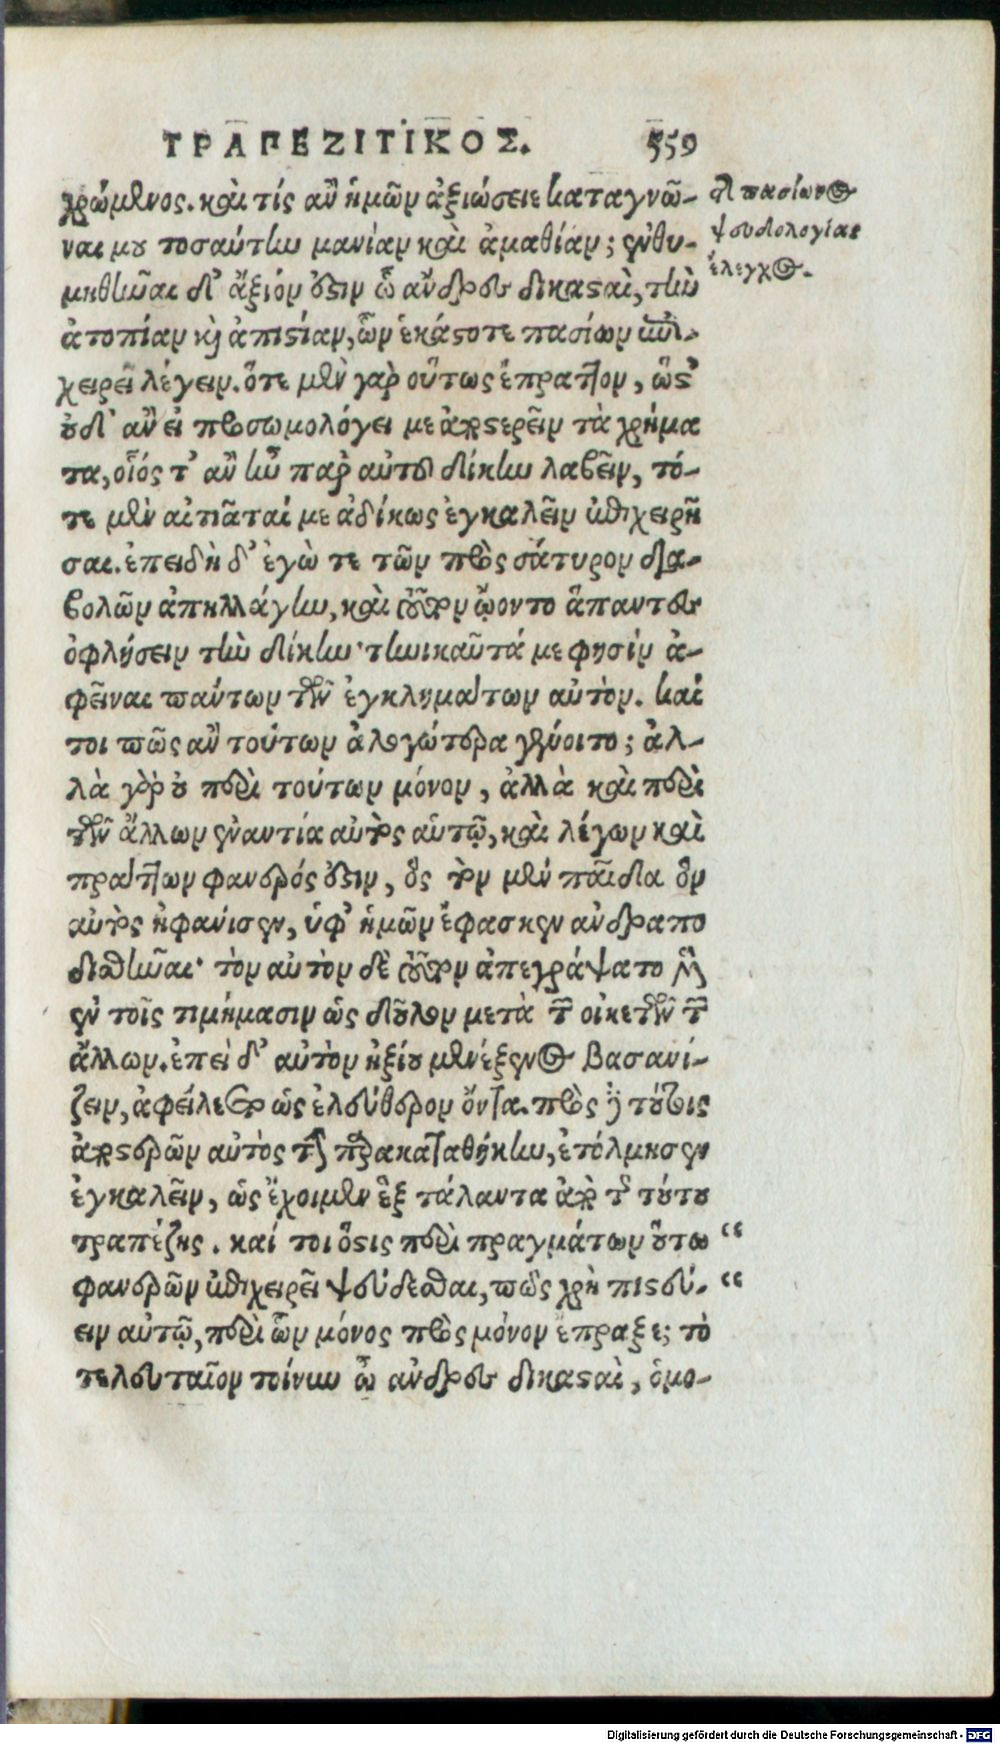 ΤΡΑΠΕΖΙΤΙΚΟΣ. 559
χρώμενος. καὶ τίς ἂν ἡμῶν ἀξιώσειε καταγνῶ-
ναι μου τοσαύτην μανίαν καὶ ἀμαθίαν; ἐνθυ-
μηθῆναι δ' ἄξιόν ἐστιν ὦ ἄνδρες δικασταὶ, τὴν
ἀτοπίαν καὶ ἀπιστίαν, ὧν ἑκάστοτε πασίων ἐπι-
χειρεῖ λέγειν. ὅτε μὲν γὰρ οὕτως ἔπραττον, ὥστ'
οὐδ' ἂν εἰ προσωμολόγει με ἀποστερεῖν τὰ χρήμα
τα, οἷός τ' ἂν ἦν παρ' αὐτοῦ δίκην λαβεῖν, τό-
τε μὲν αἰτιᾶταί με ἀδίκως ἐγκαλεῖν ἐπιχειρῆ
σαι. ἐπειδὴ δ' ἐγώ τε τῶν πρὸς σάτυρον δια-
βολῶν ἀπηλλάγην, καὶ τοῦτον ᾤοντο ἅπαντες
ὀφλήσειν τὴν δίκην· τηνικαῦτά με φησὶν ἀ-
φεῖναι πάντων τῶν ἐγκλημάτων αὐτὸν. καί
τοι πῶς ἂν τούτων ἀλογώτερα γένοιτο; ἀλ-
λὰ γὰρ οὐ περὶ τούτων μόνον, ἀλλὰ καὶ περὶ
τῶν ἄλλων ἐναντία αὐτὸς αὑτῷ, καὶ λέγων καὶ
πράττων φανερός ἐστιν, ὃς τὸν μὲν παῖδα ὃν
αὐτὸς ἠφάνισεν, ὑφ' ἡμῶν ἔφασκεν ἀνδραπο
δισθῆναι· τὸν αὐτὸν δὲ τοῦτον ἀπεγράψατο μὲν
ἐν τοῖς τιμήμασιν ὡς δοῦλον μετὰ τῶν οἰκετῶν τῶν
ἄλλων. ἐπεὶ δ' αὐτὸν ἠξίου μενέξενος βασανί-
ζειν, ἀφείλετο ὡς ἐλεύθερον ὄντα. πρὸς δὲ τούτοις
ἀποστερῶν αὐτὸς τὴν παρακαταθήκην, ἐτόλμησεν
ἐγκαλεῖν, ὡς ἔχοιμεν ἓξ τάλαντα ἀπὸ τῆς τούτου
τραπέζης. καί τοι ὅστις περὶ πραγμάτων οὕτω “
φανερῶν ἐπιχειρεῖ ψεύδεσθαι, πῶς χρὴ πιστεύ- “
ειν αὐτῷ, περὶ ὧν μόνος πρὸς μόνον ἔπραξε; τὸ
τελευταῖον τοίνυν ὦ ἄνδρες δικασταὶ, ὁμο-
τῆς πασίωνος
ψευδολογίας
ἔλεγχος.
Digitalisierung gefördert durch die Deutsche Forschungsgemeinschaft - DFG